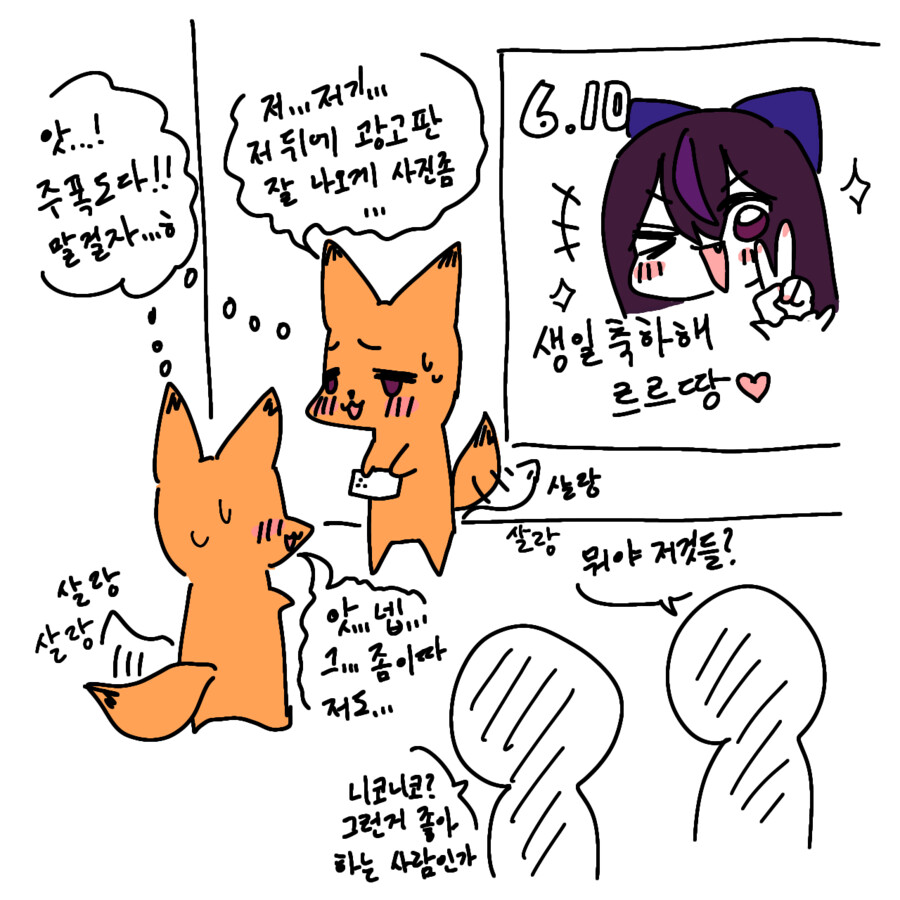 앗...!
주폭도다!!
말걸자...ㅎ
저...저기...
저 뒤에 광고판
잘 나오게 사진좀
...
6.10
생일축하해
르르땅♡
살랑
살랑
살랑
살랑
앗... 넵...
그... 좀이따
저도...
뭐야 저것들?
니코니코?
그런거 좋아
하는 사람인가